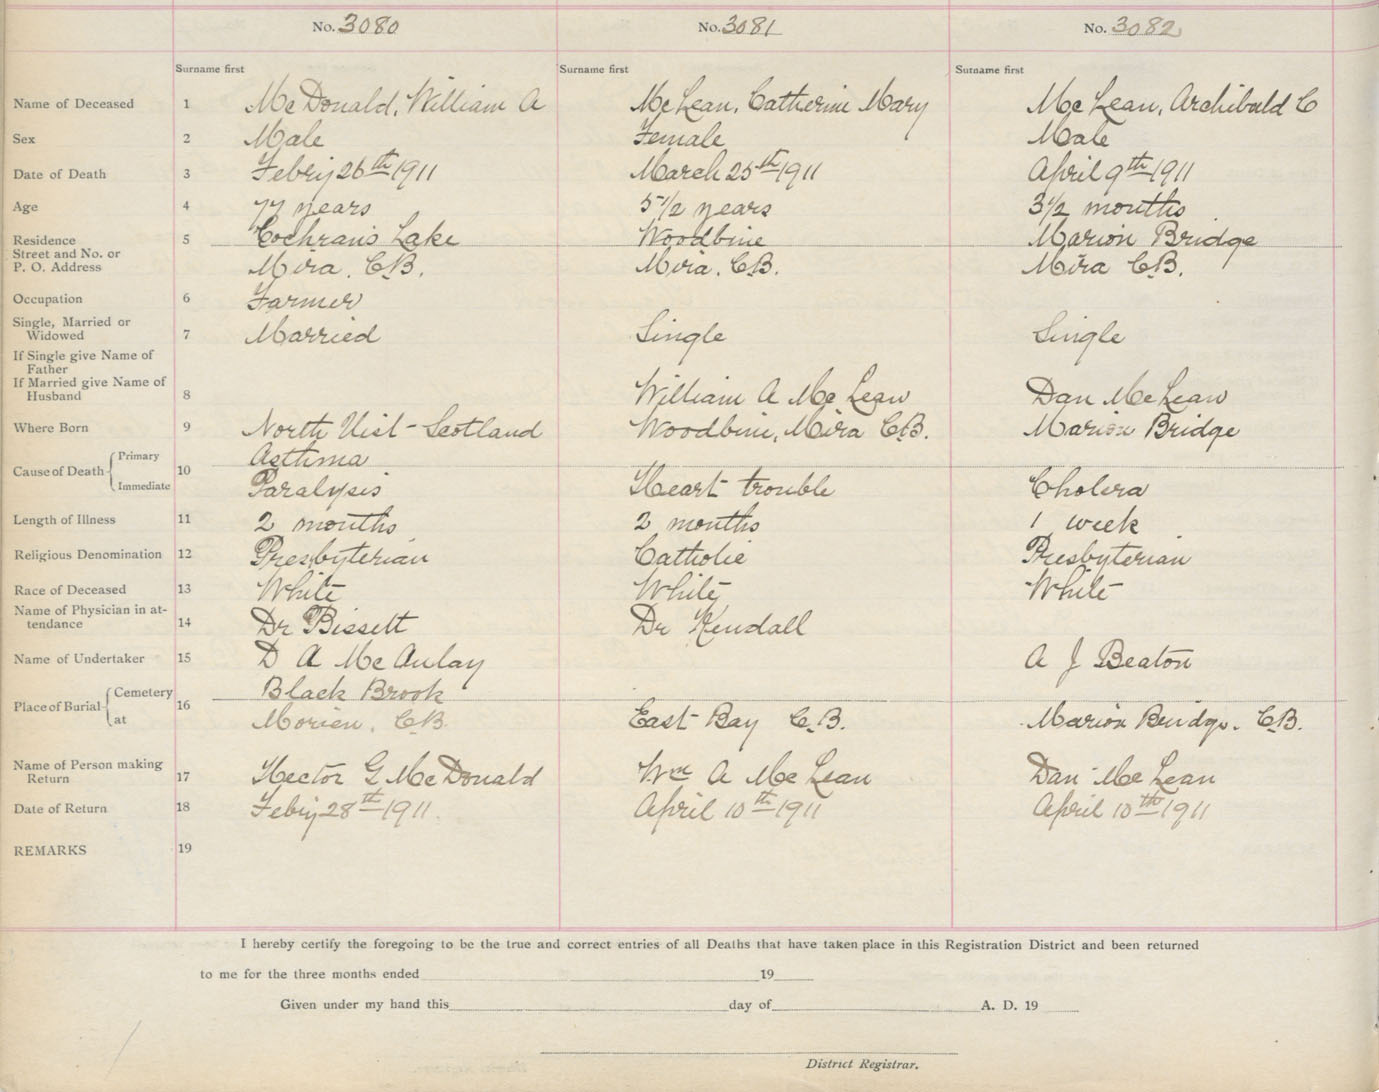 No. 3080 No. 3081 No. 3082
Surname first Surname first Surname first
Name of Deceased 1 McDonald, William A McLean, Catherine Mary McLean, Archibald C
Sex 2 Male Female Male
Date of Death 3 Febry 26th 1911 March 25th 1911 April 9th 1911
Age 4 77 years 5 1/2 years 3 1/2 months
Residence 5 Cochran's Lake Woodbine Marion Bridge
Street and No. or
P. O. Address Mira. C.B. Mira. C.B. Mira C.B.
Occupation 6 Farmer
Single, Married or
Widowed 7 Married Single Single
If Single give Name of
Father
If Married give Name of
Husband 8 William A McLean Dan McLean
Where Born 9 North Uist - Scotland Woodbine, Mira C.B. Marion Bridge
Cause of Death Primary 10 Asthma
Immediate Paralysis Heart trouble Cholera
Length of Illness 11 2 months 2 months 1 week
Religious Denomination 12 Presbyterian Catholic Presbyterian
Race of Deceased 13 White White White
Name of Physician in at-
tendance 14 Dr Bissett Dr Kendall
Name of Undertaker 15 D A McAulay A J Beaton
Place of Burial Cemetery 16 Black Brook
at Morien. C.B. East Bay C.B. Marion Bridge. C.B.
Name of Person making
Return 17 Hector G McDonald Wm A McLean Dan McLean
Date of Return 18 Febry 28th 1911. April 10th 1911 April 10th 1911
REMARKS 19
I hereby certify the foregoing to be the true and correct entries of all Deaths that have taken place in this Registration District and been returned
to me for the three months ended 19
Given under my hand this day of A. D. 19
District Registrar.